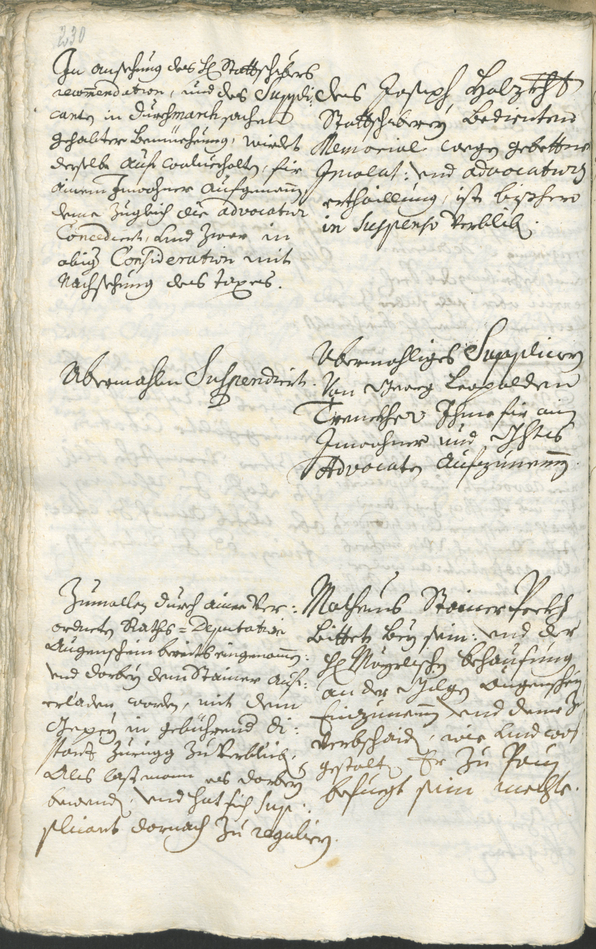 230
In ansehung des H: Stattschreibers
recommendation, und des Suppli-
canten in durchmarchsachen
gehabter bemüehung, würdet
derselbe auf wolverhalten, für
ainem Inwohner aufgenomen,
deme zugleich die advocatur
Concediert, und zwar in
obig Consideration mit
Nachsehung des taxes.
des Joseph Holz
Stattschreiberey bedientens
Memorial wegen gebettner
Inwolat: und advocaturs
erthaillung, ist bishero
in suspenso verblib.
Abermahlen Suspendiert.
Abermahliges Suppliciern
von Georg Leopolden
Ihme für ain
Inwohner und
Advocaten aufzunemen.
Zumallen durch aine ver-
ordnete Raths-Deputation
Augenschein bereits eingenomen,
und dorbey dem Stainer auf-
erladen worden, mit dem
in gebührend di-
stanz zurugg zu verbleiben,
Als last mann es darbey
bewenden, und hat sich sup-
plicant darnach zu regulieren.
Matheus Stainer Peckh
Bittet bey sein: und der
H: behausung
an der Augenschein
Einzunemen und deme Zu
verbschaiden, wie und was
gestalt Er zu Pauen
befuegt sein mechte.